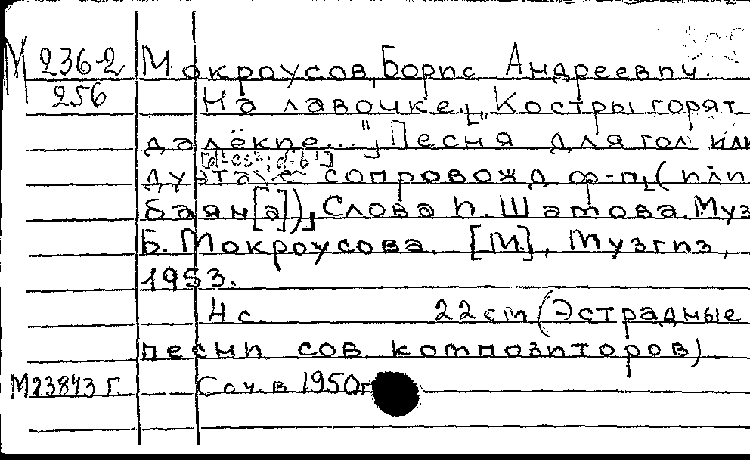 М 236-2 Мокроусов, Борис Андреевич.
256 На лавочке. [„Костры горят
далёкие..."] Песня для гол. или
[d¹-es²; d¹-b¹]
дуэта с сопровожд. ф-п. (или
баян[а]). Слова П. Шатова. Муз.
Б. Мокроусова. [М.], Музгиз,
1953.
4 с. 22 cm (Эстрадные
песни сов. композиторов)
М23843 Г Соч. в 1950г